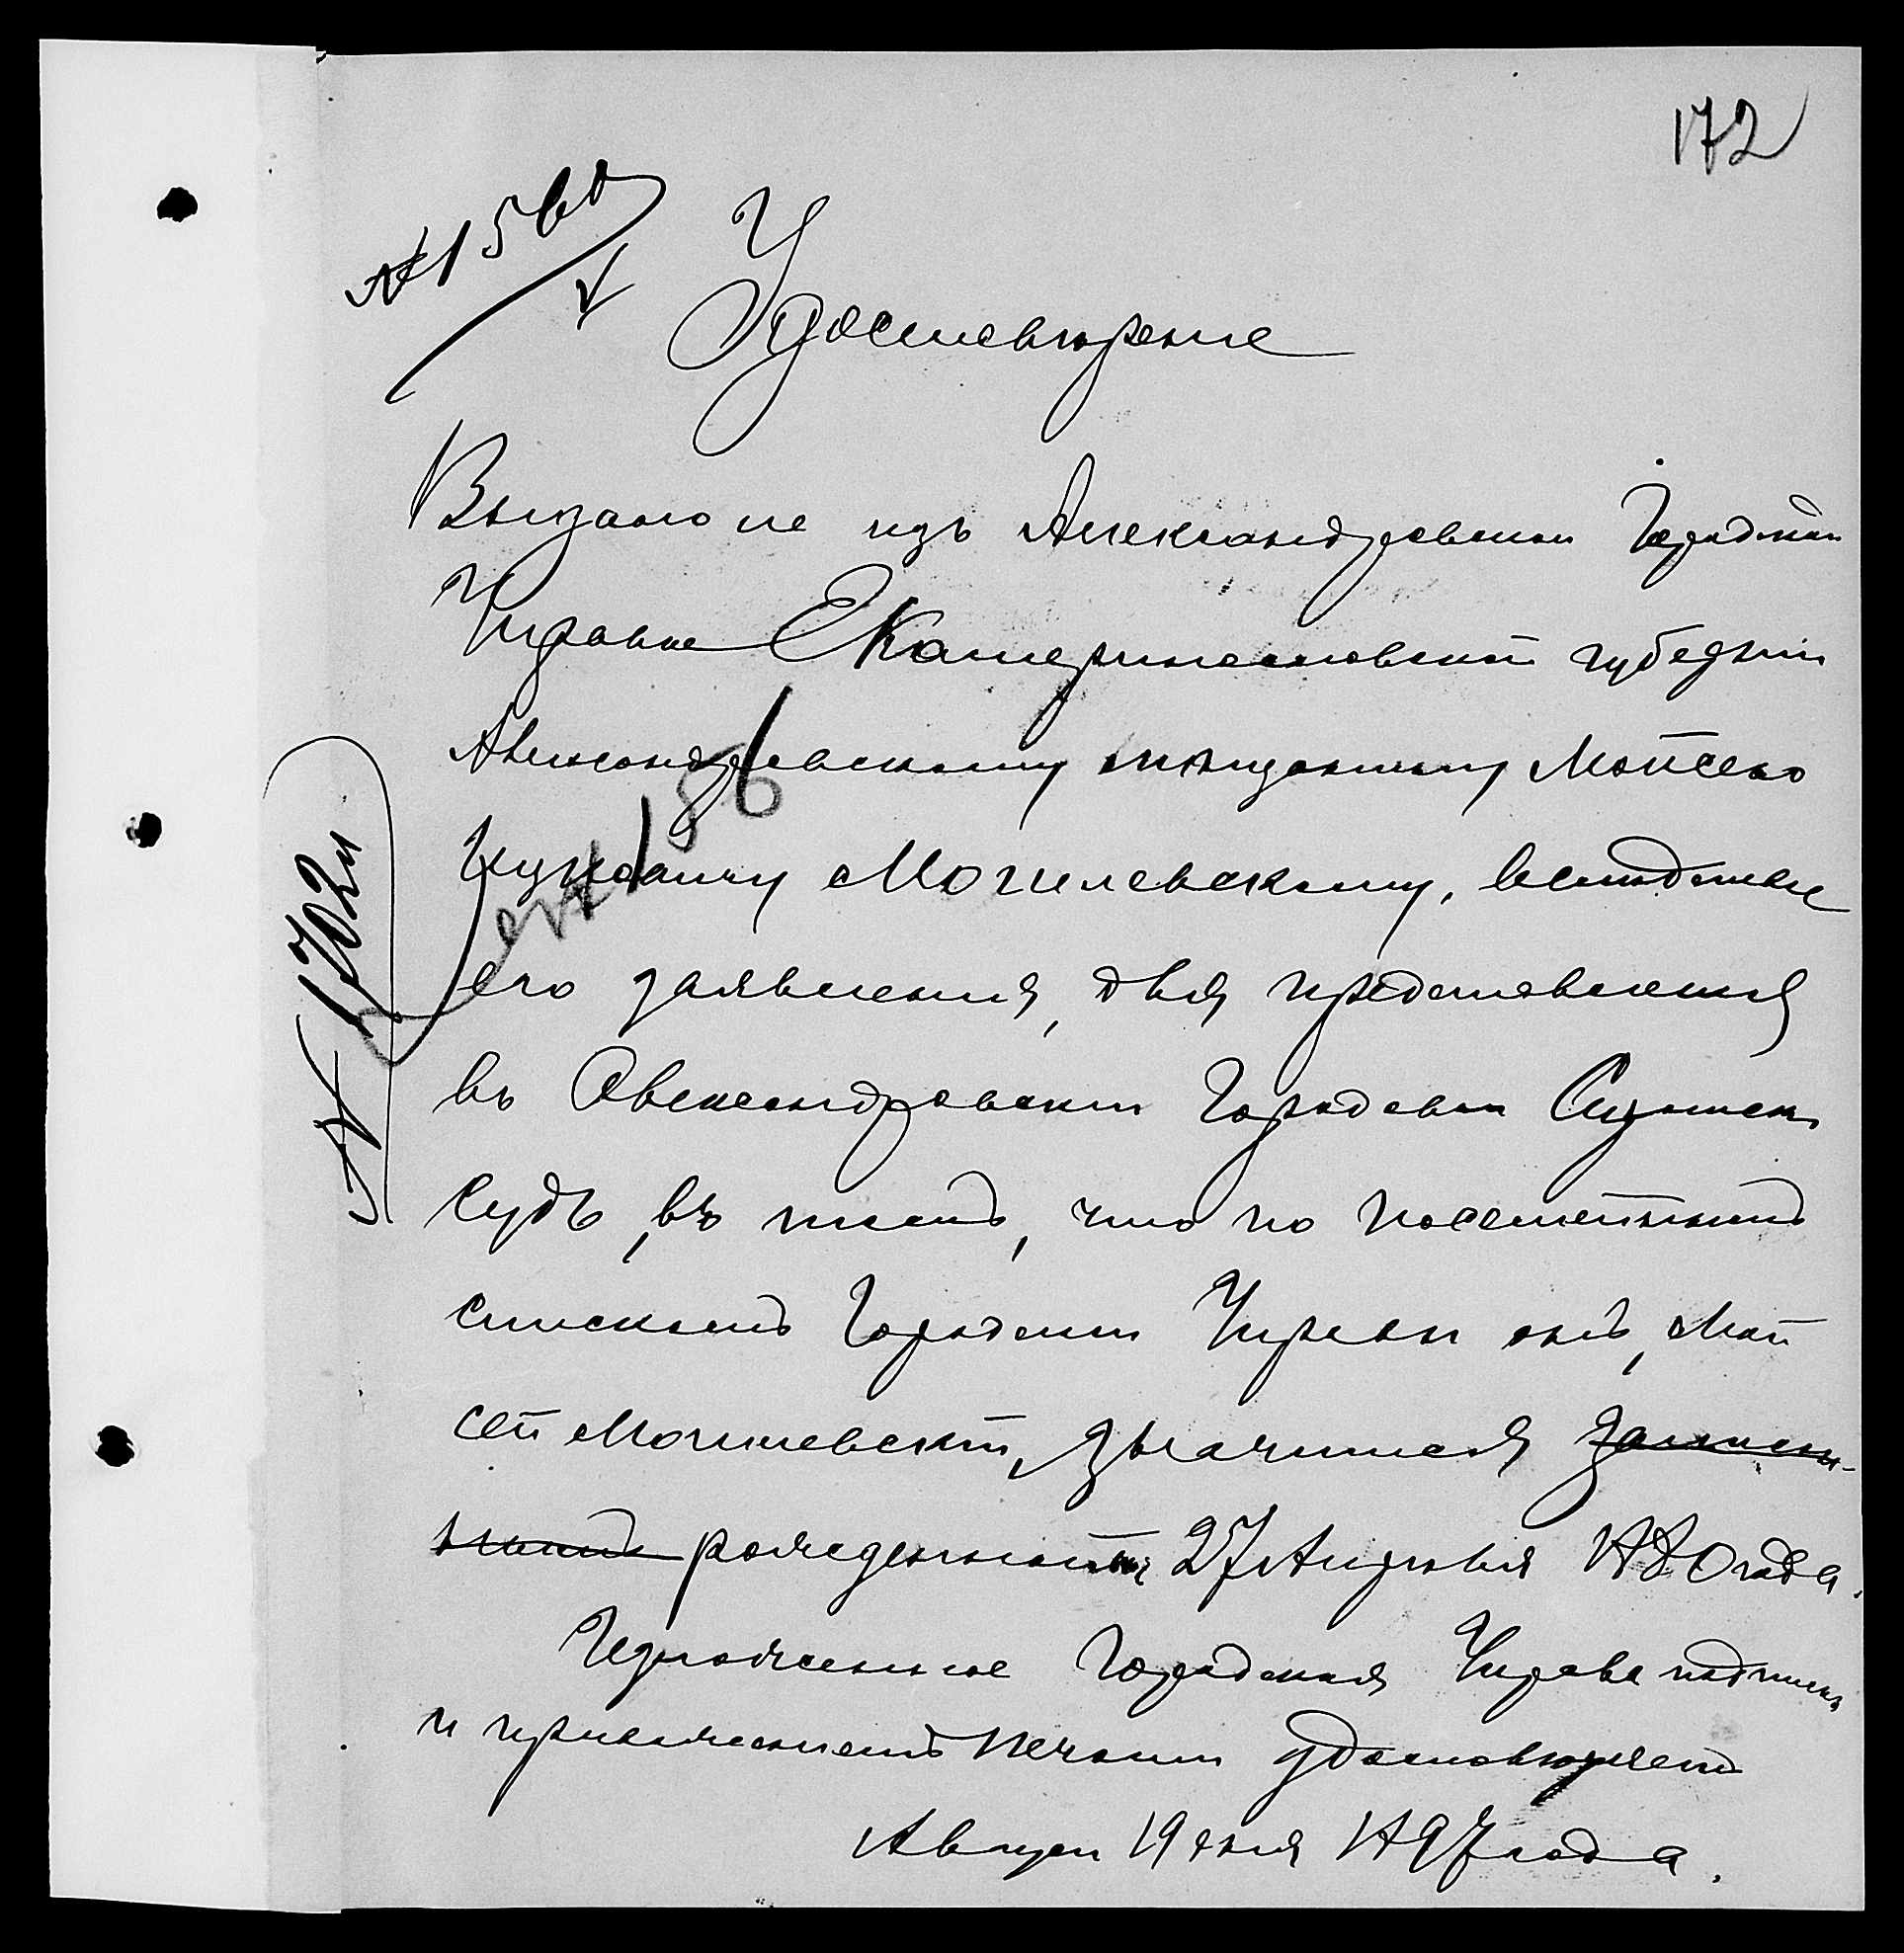 172
№ 1560
Удостовѣреніе
Выдано изъ Александровской Городской
Управы Екатеринославской губерніи
Александровскому мѣщанину Мойсею
Ицковичу Могилевскому, вследствие
его заявленія, для представленія
въ Александровский Городовой
судъ, въ томъ, что по посемейнымъ
спискамъ Городской Управы онъ, Мой
сей Могилевскій, значится записан-
нымъ рожденнымъ 27 Апрѣля 1880 года.
Изложенное Городская Управа подписью
и приложеніемъ печати удостовѣряетъ
Августа 19 дня 1897 года.
№ 1702
№ 186